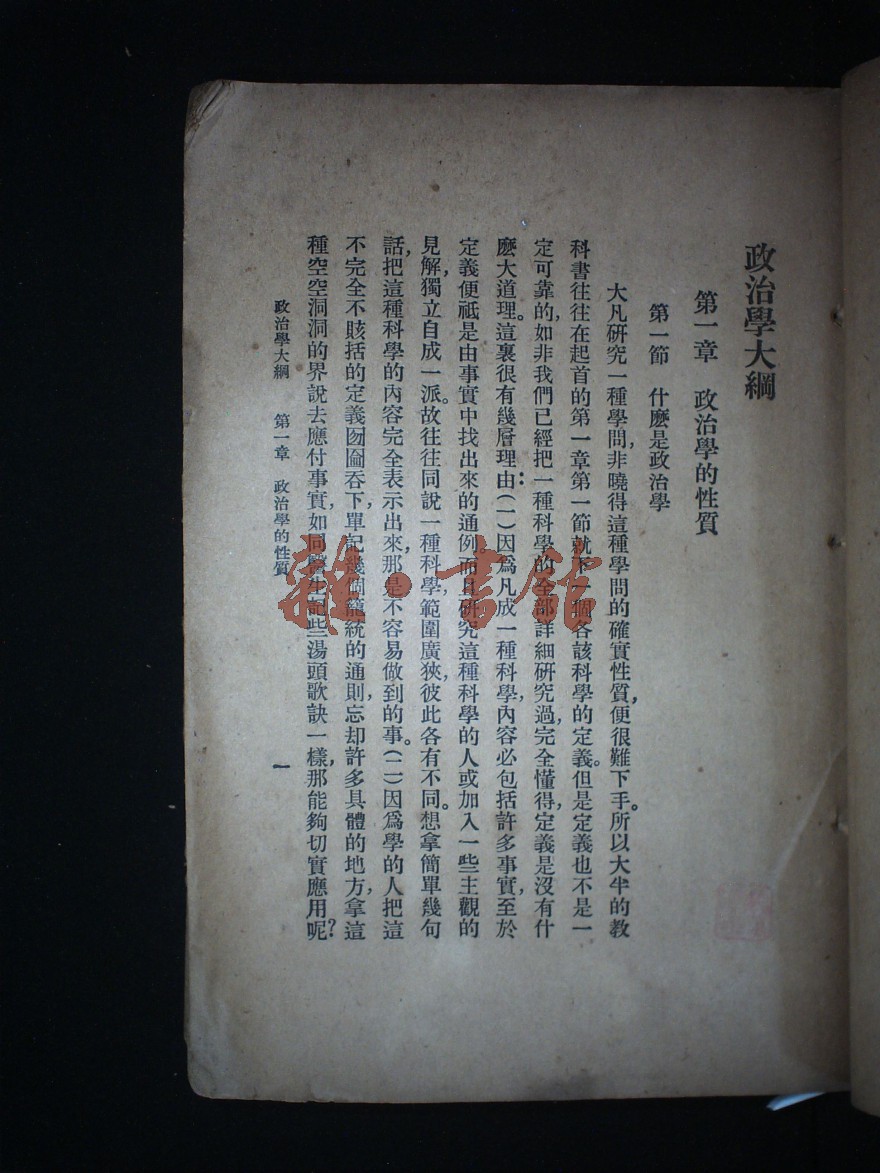 政治學大綱
第一章　政治學的性質
第一節　什麽是政治學
大凡研究一種學問，非曉得這種學問的確實性質，便很難下手。所以大半的教
科書往往在起首的第一章第一節就下一個各該科學的定義。但是定義也不是一
定可靠的，如非我們已經把一種科學的全部詳細研究過，完全懂得，定義是沒有什
麽大道理。這裏很有幾層理由：（一）因爲凡成一種科學，內容必包括許多事實，至於
定義便祗是由事實中找出來的通例。而且研究這種科學的人或加入一些主觀的
見解，獨立自成一派。故往往同說一種科學，範圍廣狹，彼此各有不同。想拿簡單幾句
話，把這種科學的內容完全表示出來，那是不容易做到的事。（二）因爲學的人把這
不完全不賅括的定義囫圇吞下，單記幾個籠統的通則，忘却許多具體的地方，拿這
種空空洞洞的界說去應付事實，如同醫生記些湯頭歌訣一樣，那能夠切實應用呢？
政治學大綱　第一章　政治學的性質
一
雜·書館